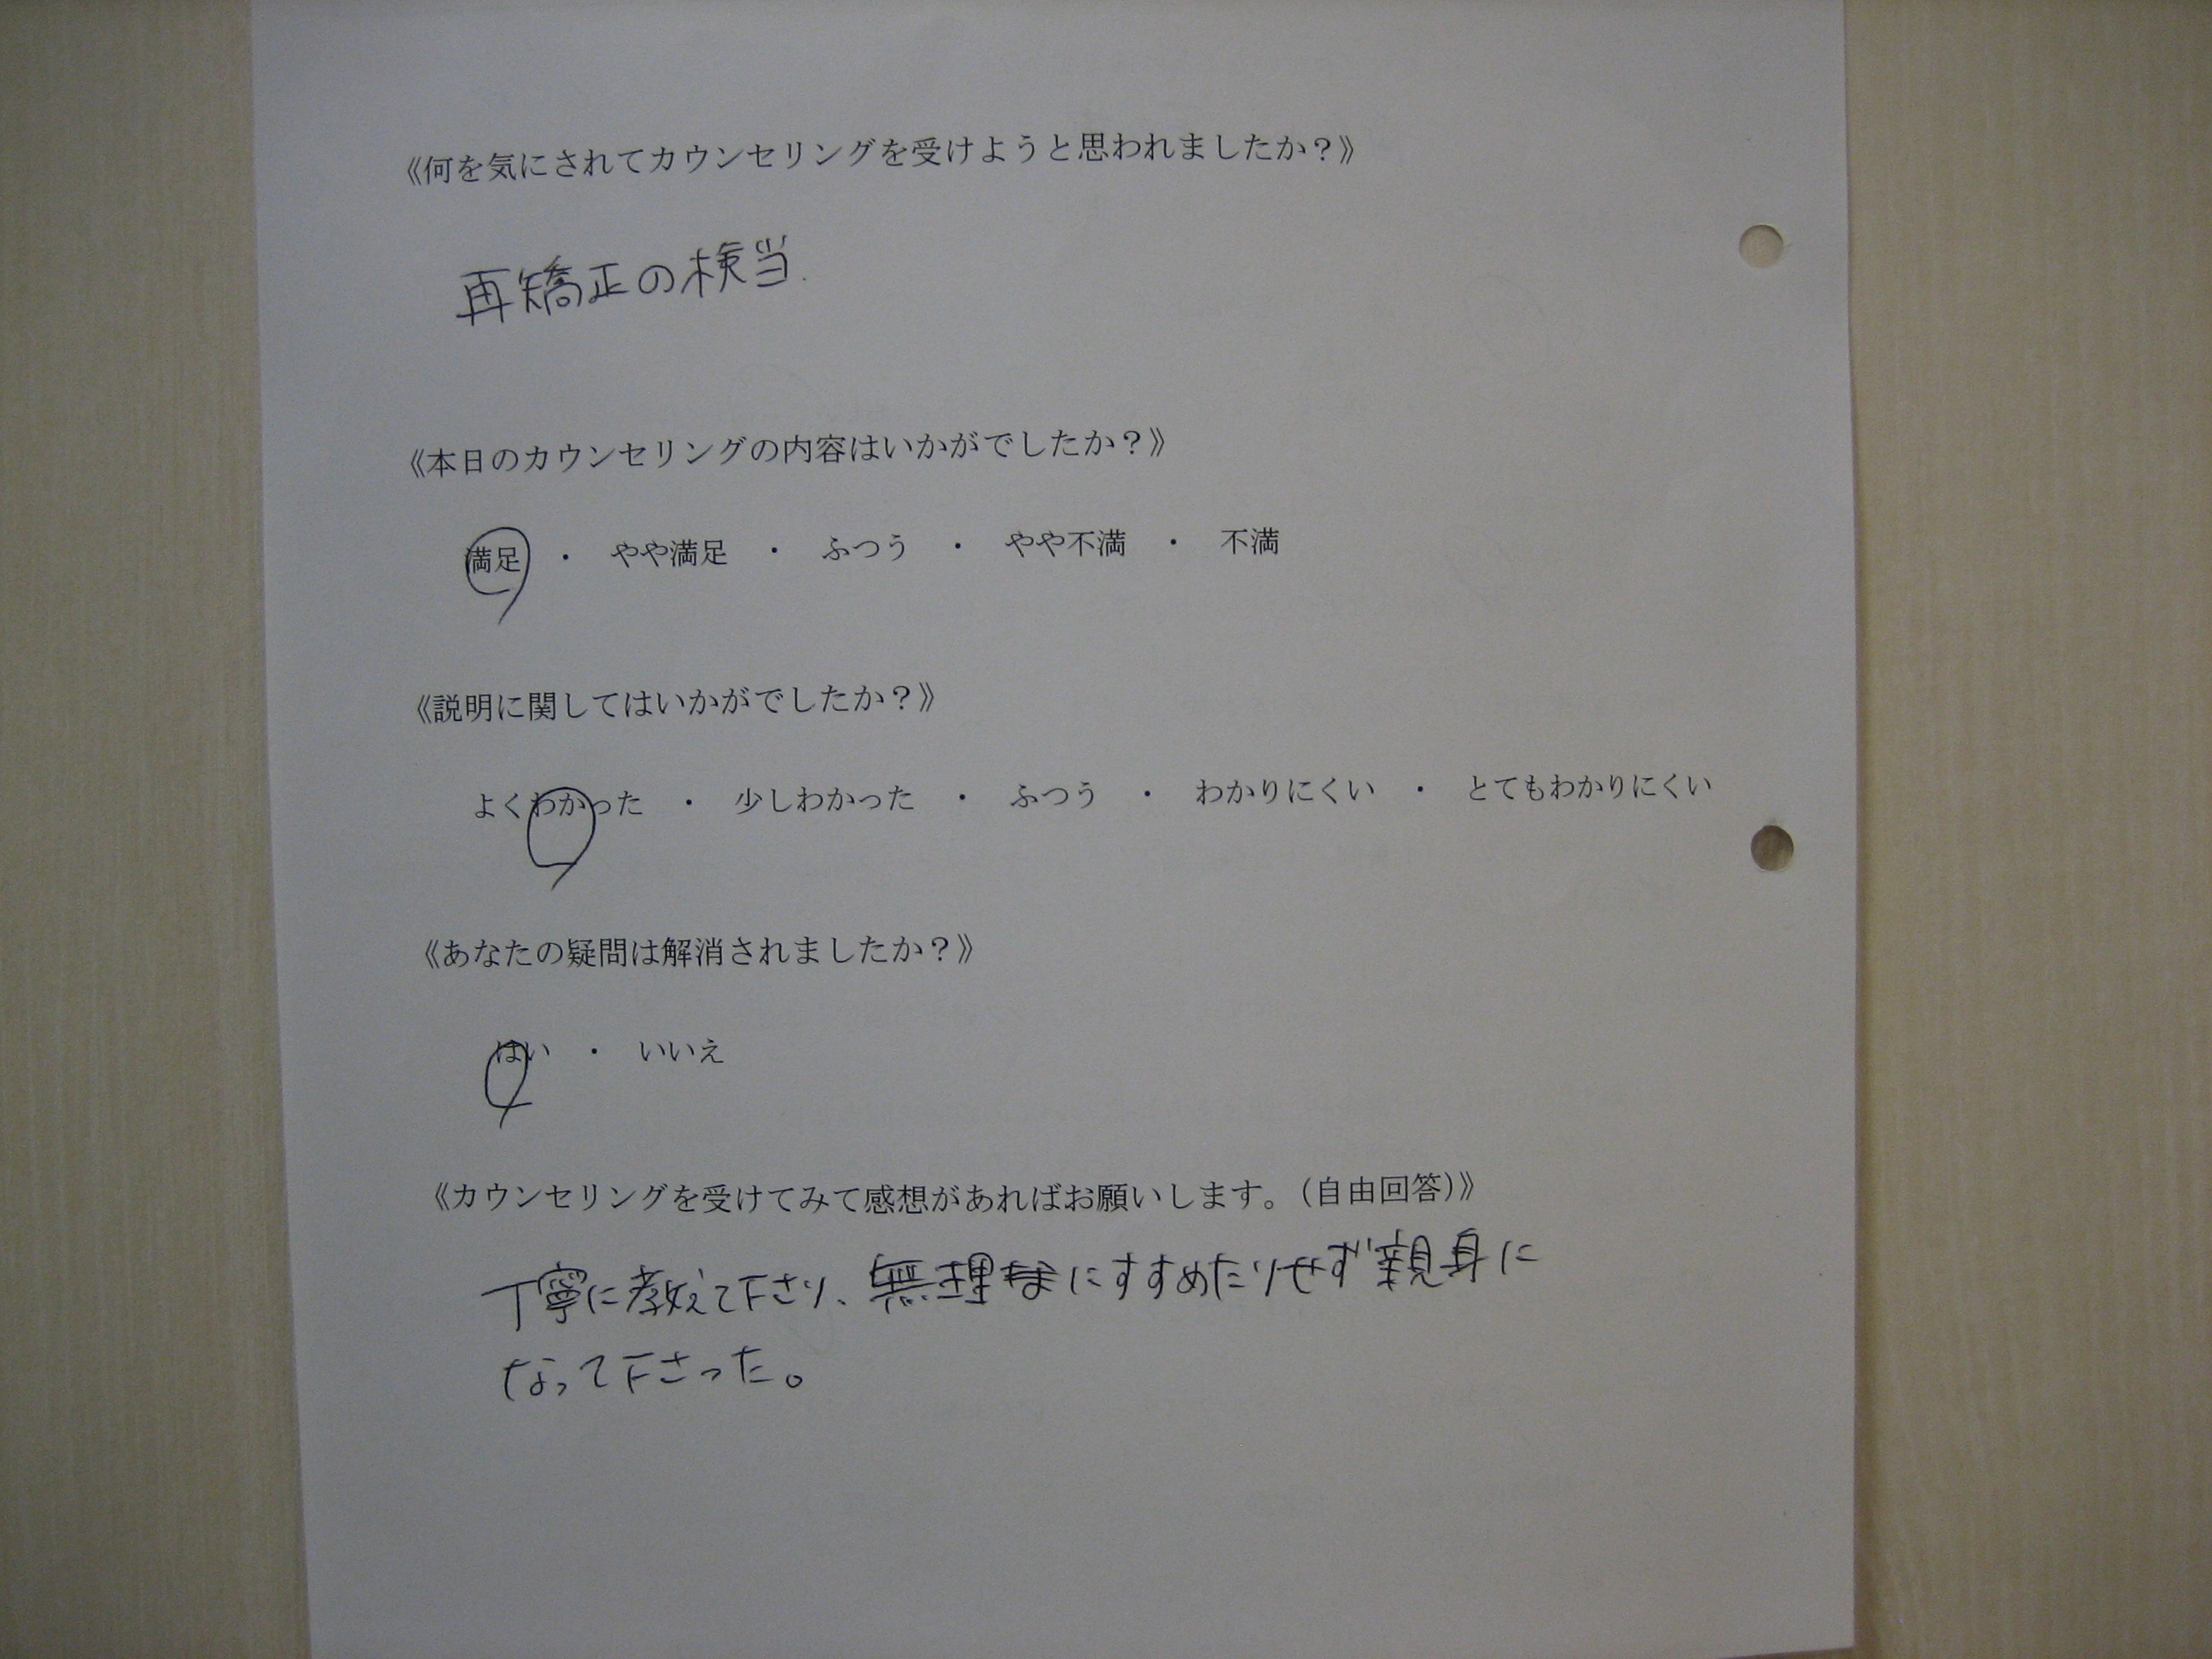 《何を気にされてカウンセリングを受けようと思われましたか？》
再矯正の検当.
《本日のカウンセリングの内容はいかがでしたか？》
満足　・　やや満足　・　ふつう　・　やや不満　・　不満
《説明に関してはいかがでしたか？》
よくわかった　・　少しわかった　・　ふつう　・　わかりにくい　・　とてもわかりにくい
《あなたの疑問は解消されましたか？》
はい　・　いいえ
《カウンセリングを受けてみて感想があればお願いします。（自由回答）》
丁寧に教えて下さり、無理にすすめたりせず親身に
なって下さった。